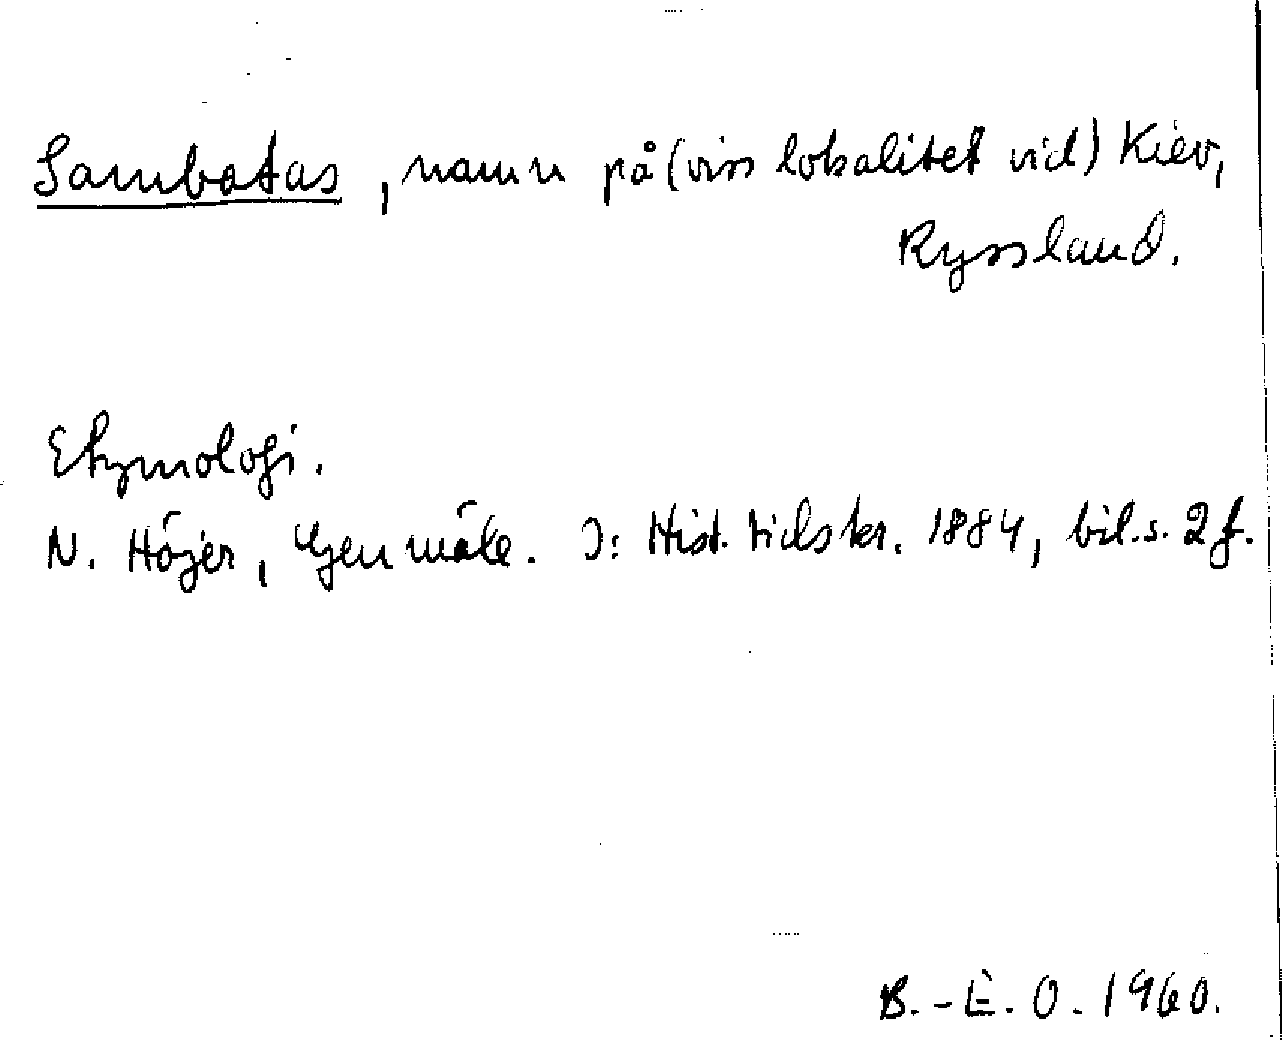 Sambatas, namn på (viss lokalitet vid) Kiev,
Ryssland.
Etymologi.
N. Höjer, Genmäle. I: Hist. tidskr. 1884, bil. s. 2 f.
B.-E. O. 1960.